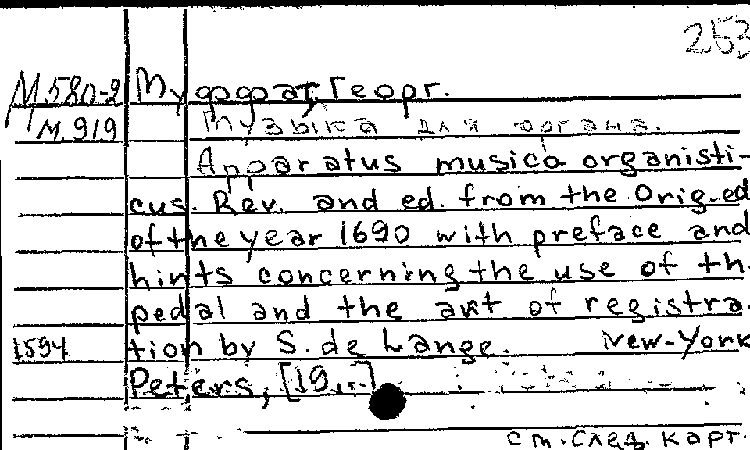 253
М.580-2 Муффат, Георг.
М.919 Музыка для органа.
Apparatus musico organisti-
cus. Rev. and ed. from the Orig. ed
of the year 1690 with preface and
hints concerning the use of th
pedal and the art of registra-
1594 tion by S. de Lange. New-York
Peters, [19...]
см. след. карт.